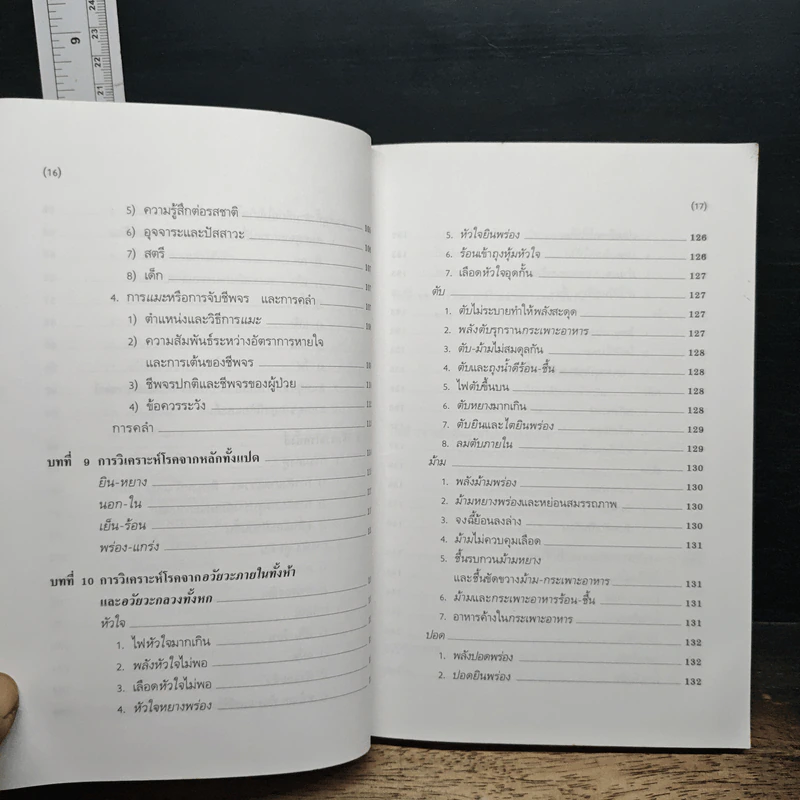 (16)
5) ความรู้สึกต่อรสชาติ
6) อุจจาระและปัสสาวะ
7) สตรี
8) เด็ก
4. การแมะหรือการจับชีพจร และการคลำ
1) ตำแหน่งและวิธีการแมะ
2) ความสัมพันธ์ระหว่างอัตราการหายใจ
และการเต้นของชีพจร
3) ชีพจรปกติและชีพจรของผู้ป่วย
4) ข้อควรระวัง
การคลำ
บทที่ 9 การวิเคราะห์โรคจากหลักทั้งแปด
ยิน-หยาง
นอก-ใน
เย็น-ร้อน
พร่อง-แกร่ง
บทที่ 10 การวิเคราะห์โรคจากอวัยวะภายในทั้งห้า
และอวัยวะกลวงทั้งหก
หัวใจ
1. ไฟหัวใจมากเกิน
2. พลังหัวใจไม่พอ
3. เลือดหัวใจไม่พอ
4. หัวใจหยางพร่อง
(17)
5. หัวใจยินพร่อง 126
6. ร้อนเข้าถุงหุ้มหัวใจ 126
7. เลือดหัวใจอุดกั้น 127
ตับ 127
1. ตับไม่ระบายทำให้พลังสะดุด 127
2. พลังตับรุกรานกระเพาะอาหาร 127
3. ตับ-ม้ามไม่สมดุลกัน 128
4. ตับและถุงน้ำดีร้อน-ชื้น 128
5. ไฟตับขึ้นบน 128
6. ตับหยางมากเกิน 128
7. ตับยินและไตยินพร่อง 129
8. ลมตับภายใน 129
ม้าม 130
1. พลังม้ามพร่อง 130
2. ม้ามหยางพร่องและหย่อนสมรรถภาพ 130
3. จงฉี้ย้อนลงล่าง 130
4. ม้ามไม่ควบคุมเลือด 131
5. ชื้นรบกวนม้ามหยาง
และชื้นขัดขวางม้าม-กระเพาะอาหาร 131
6. ม้ามและกระเพาะอาหารร้อน-ชื้น 131
7. อาหารค้างในกระเพาะอาหาร 131
ปอด 132
1. พลังปอดพร่อง 132
2. ปอดยินพร่อง 132
9
24
23
22
21